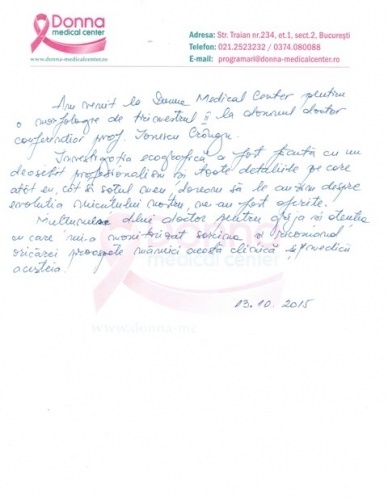 Donna
medical center
www.donna-medicalcenter.ro
Adresa: Str. Traian nr.234, et.1, sect.2, București
Telefon: 021.2523232 / 0374.080088
E-mail: programari@donna-medicalcenter.ro
Am venit la Donna Medical Center pentru
o morfologie de trimestrul II la domnul doctor
conferențiar prof. Ionescu Crîngu.
Investigația ecografică a fost făcută cu un
deosebit profesionalism în toate detaliile pe care
atât eu, cât și soțul meu, doream să le auzim despre
evoluția micuțului nostru, ne-au fost oferite.
Mulțumesc dlui doctor pentru grija și atenția
cu care mi-a monitorizat sarcina și recomand
oricărei proaspete mămici această clinică și medicii
acesteia!
13.10.2015
Donna
medical center
www.donna-me